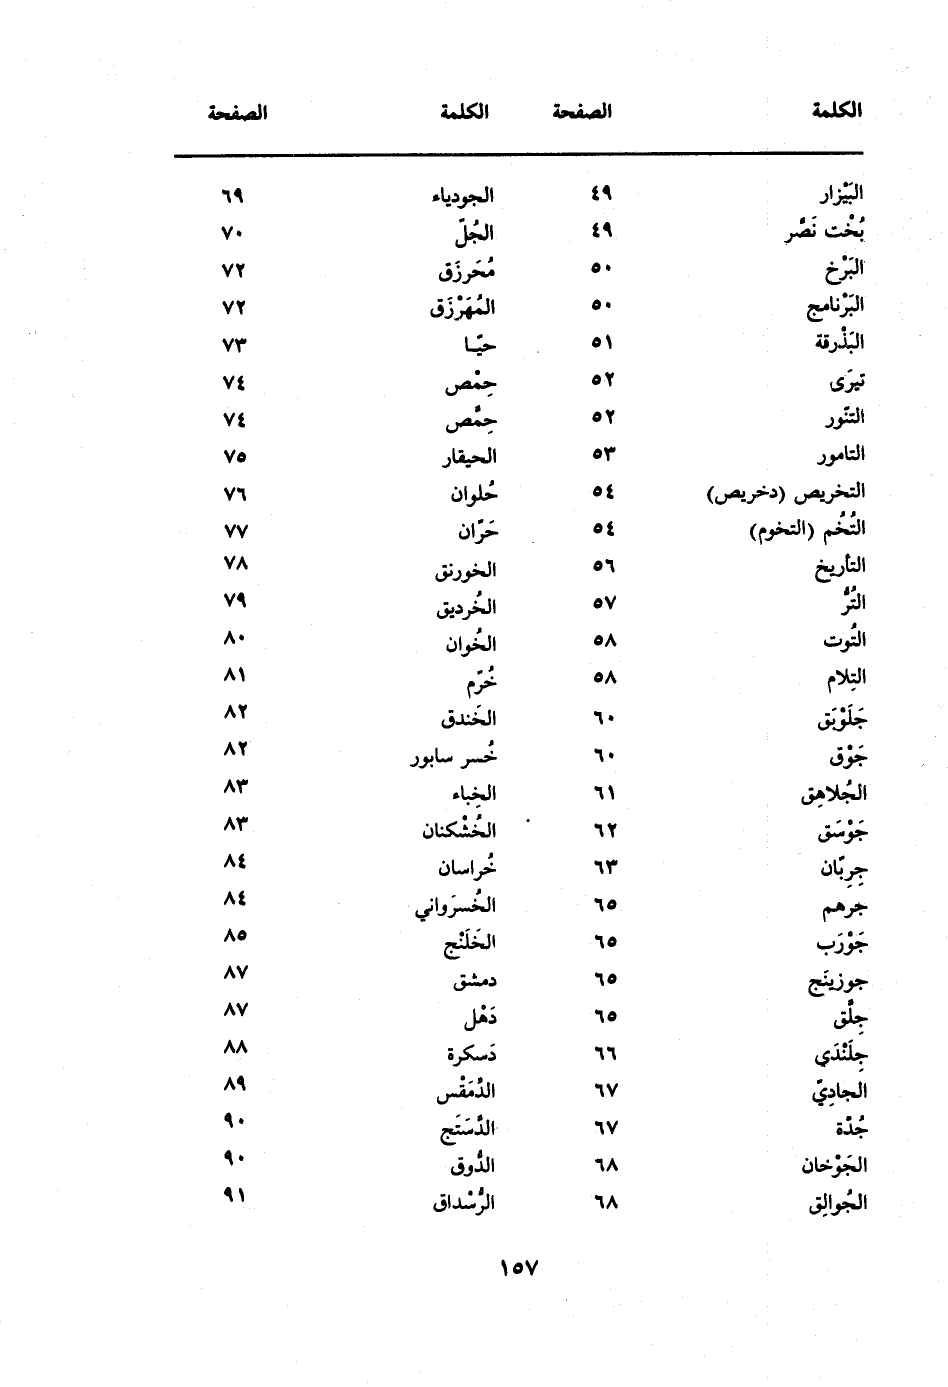 الكلمة الصفحة الكلمة الصفحة
البَيْزار ٤٩ الجودياء ٦٩
بُخْت نَصَّر ٤٩ الجُلّ ٧٠
البَرْخ ٥٠ مُحَرزَق ٧٢
البَرْنامج ٥٠ المُهَرْزَق ٧٢
البَذْرقة ٥١ حيّا ٧٣
تيرَى ٥٢ حِمْص ٧٤
التنّور ٥٢ حِمَّص ٧٤
التامور ٥٣ الحيقار ٧٥
التخريص (دخريص) ٥٤ حُلوان ٧٦
التُخُم (التخوم) ٥٤ حَرّان ٧٧
التأريخ ٥٦ الخورنق ٧٨
التُرُّ ٥٧ الخُرديق ٧٩
التُوت ٥٨ الخُوان ٨٠
التِلام ٥٨ خُرّم ٨١
جَلَوْبَق ٦٠ الخَندق ٨٢
جَوْق ٦٠ خُسر سابور ٨٢
الجُلاهِق ٦١ الخِباء ٨٣
جَوْسَق ٦٢ الخُشْكنان ٨٣
جِرِبّان ٦٣ خُراسان ٨٤
جرهم ٦٥ الخُسرَواني ٨٤
جَوْرَب ٦٥ الخَلَنْج ٨٥
جوزينَج ٦٥ دمشق ٨٧
جِلَّق ٦٥ دَهْل ٨٧
جِلَنْدَي ٦٦ دَسكرة ٨٨
الجادِيّ ٦٧ الدَّمَقْس ٨٩
جُدّة ٦٧ الدَّسَتَج ٩٠
الجَوْخان ٦٨ الدُّوق ٩٠
الجُوالِق ٦٨ الرُّسْداق ٩١
١٥٧